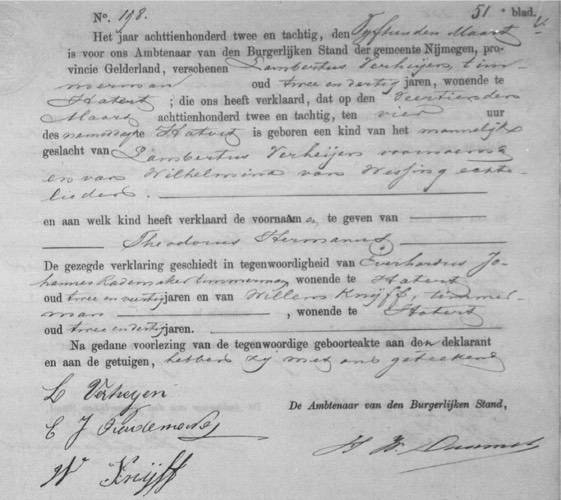 No. 198. 51e blad.
Het jaar achttienhonderd twee en tachtig, den Vijftienden Maart
is voor ons Ambtenaar van den Burgerlijken Stand der gemeente Nijmegen, pro-
vincie Gelderland, verschenen Lambertus Verheijen, tim-
merman oud twee en dertig jaren, wonende te
Hatert ; die ons heeft verklaard, dat op den Veertienden
Maart achttienhonderd twee en tachtig, ten vier uur
des namiddags te Hatert is geboren een kind van het mannelijk
geslacht van Lambertus Verheijen voornoemd
en van Wilhelmina van Wessing echte-
lieden.
en aan welk kind heeft verklaard de voornamen te geven van
Theodorus Hermanus
De gezegde verklaring geschiedt in tegenwoordigheid van Everhardus Jo-
hannes Rademaker timmerman, wonende te Hatert
oud twee en veertig jaren en van Willem Knijff, timmer-
man , wonende te Hatert
oud twee en dertig jaren.
Na gedane voorlezing van de tegenwoordige geboorteakte aan den deklarant
en aan de getuigen, hebben zij met ons geteekend
L Verheyen
E J Rademaker
De Ambtenaar van den Burgerlijken Stand,
W Knijff